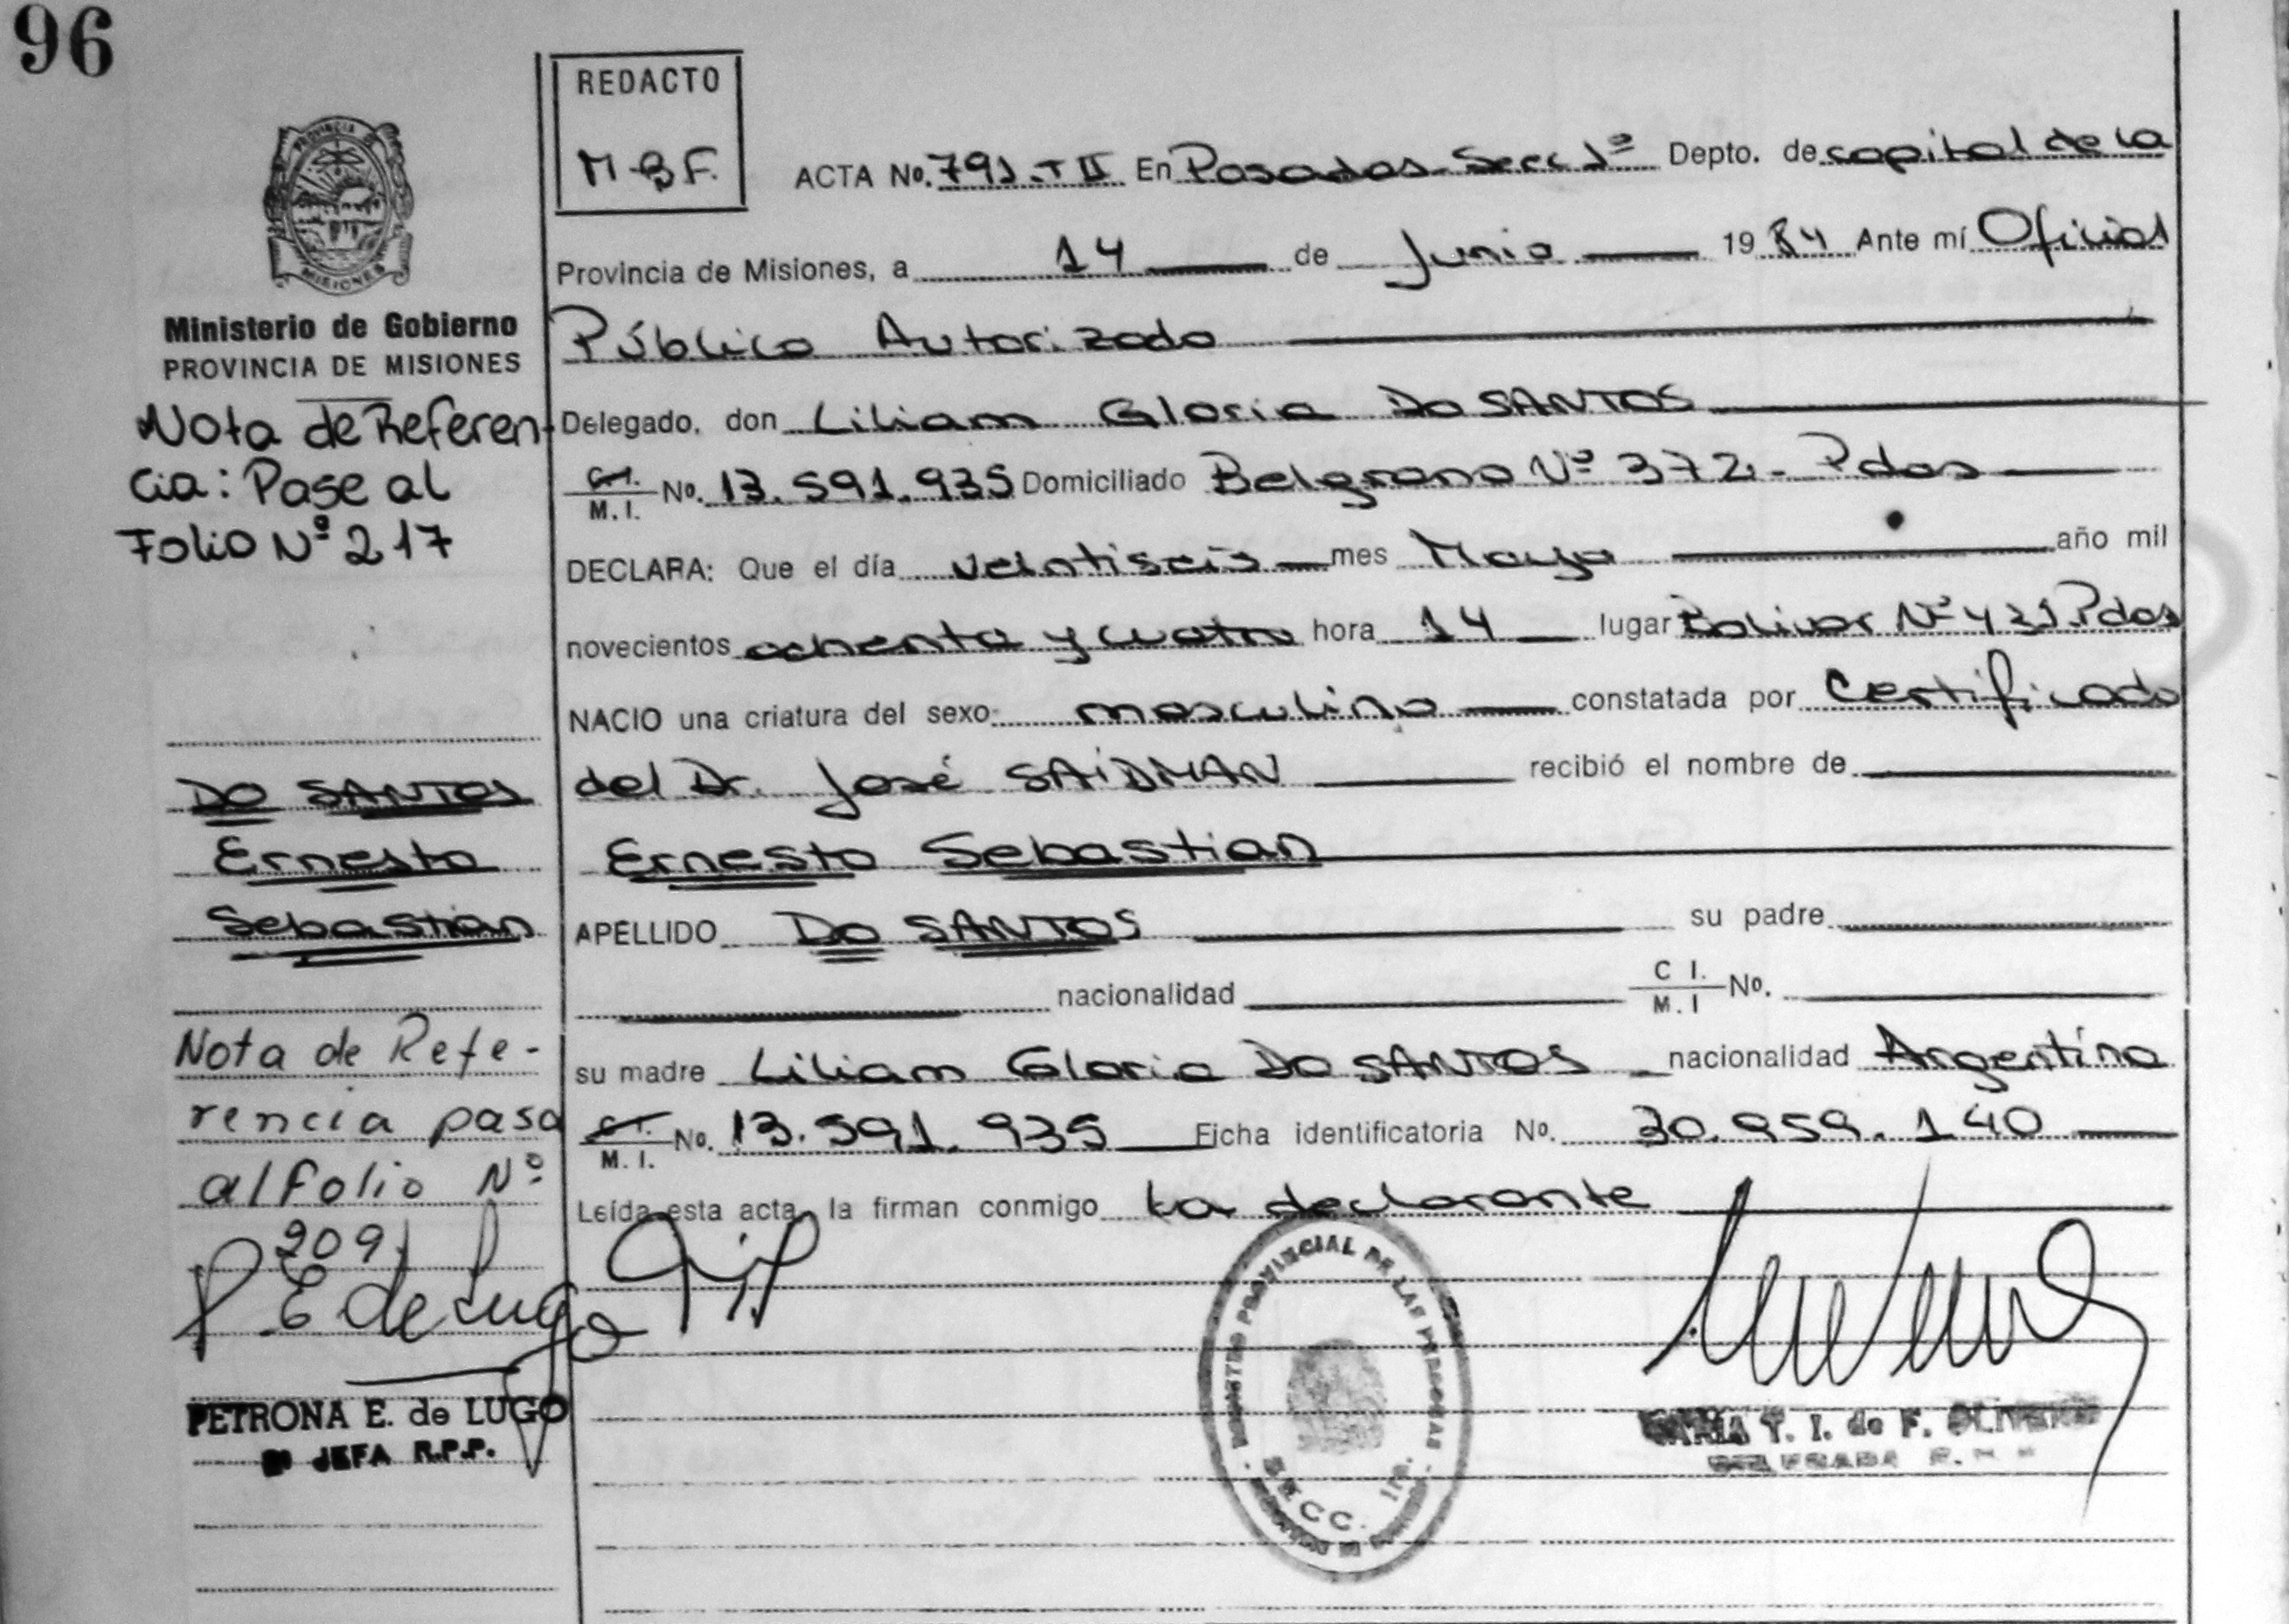 96
REDACTO
M.B.F.
ACTA No. 791-T II En Posadas Secc 1ª Depto. de capital de la
Provincia de Misiones, a 14 de Junio 19 84 Ante mí Oficial
Público Autorizado
Delegado, don Liliam Gloria Do SANTOS
C.I. M.I. No. 13.591.935 Domiciliado Belgrano Nº 372 - Pdas
DECLARA: Que el día veintiseis mes Mayo año mil
novecientos ochenta y cuatro hora 14 lugar Bolivar Nº 431 Pdas
NACIO una criatura del sexo masculino constatada por Certificado
del Dr. José SAIDMAN recibió el nombre de
Ernesto Sebastian
APELLIDO Do SANTOS su padre
nacionalidad C I. M.I No.
su madre Liliam Gloria Do SANTOS nacionalidad Argentina
C.I. M.I. No. 13.591.935 Ficha identificatoria No. 30.959.140
Leída esta acta, la firman conmigo La declarante
PROVINCIA DE
MISIONES
Ministerio de Gobierno
PROVINCIA DE MISIONES
Nota de Referen
cia: Pase al
Folio Nº 217
DO SANTOS
Ernesto
Sebastian
Nota de Refe-
rencia pasa
al folio Nº
209
P E de Lugo
PETRONA E. de LUGO
JEFA R.P.P.
REGISTRO PROVINCIAL DE LAS PERSONAS
SECC. 1ra.
MARIA T. I. de F. OLIVEIRA